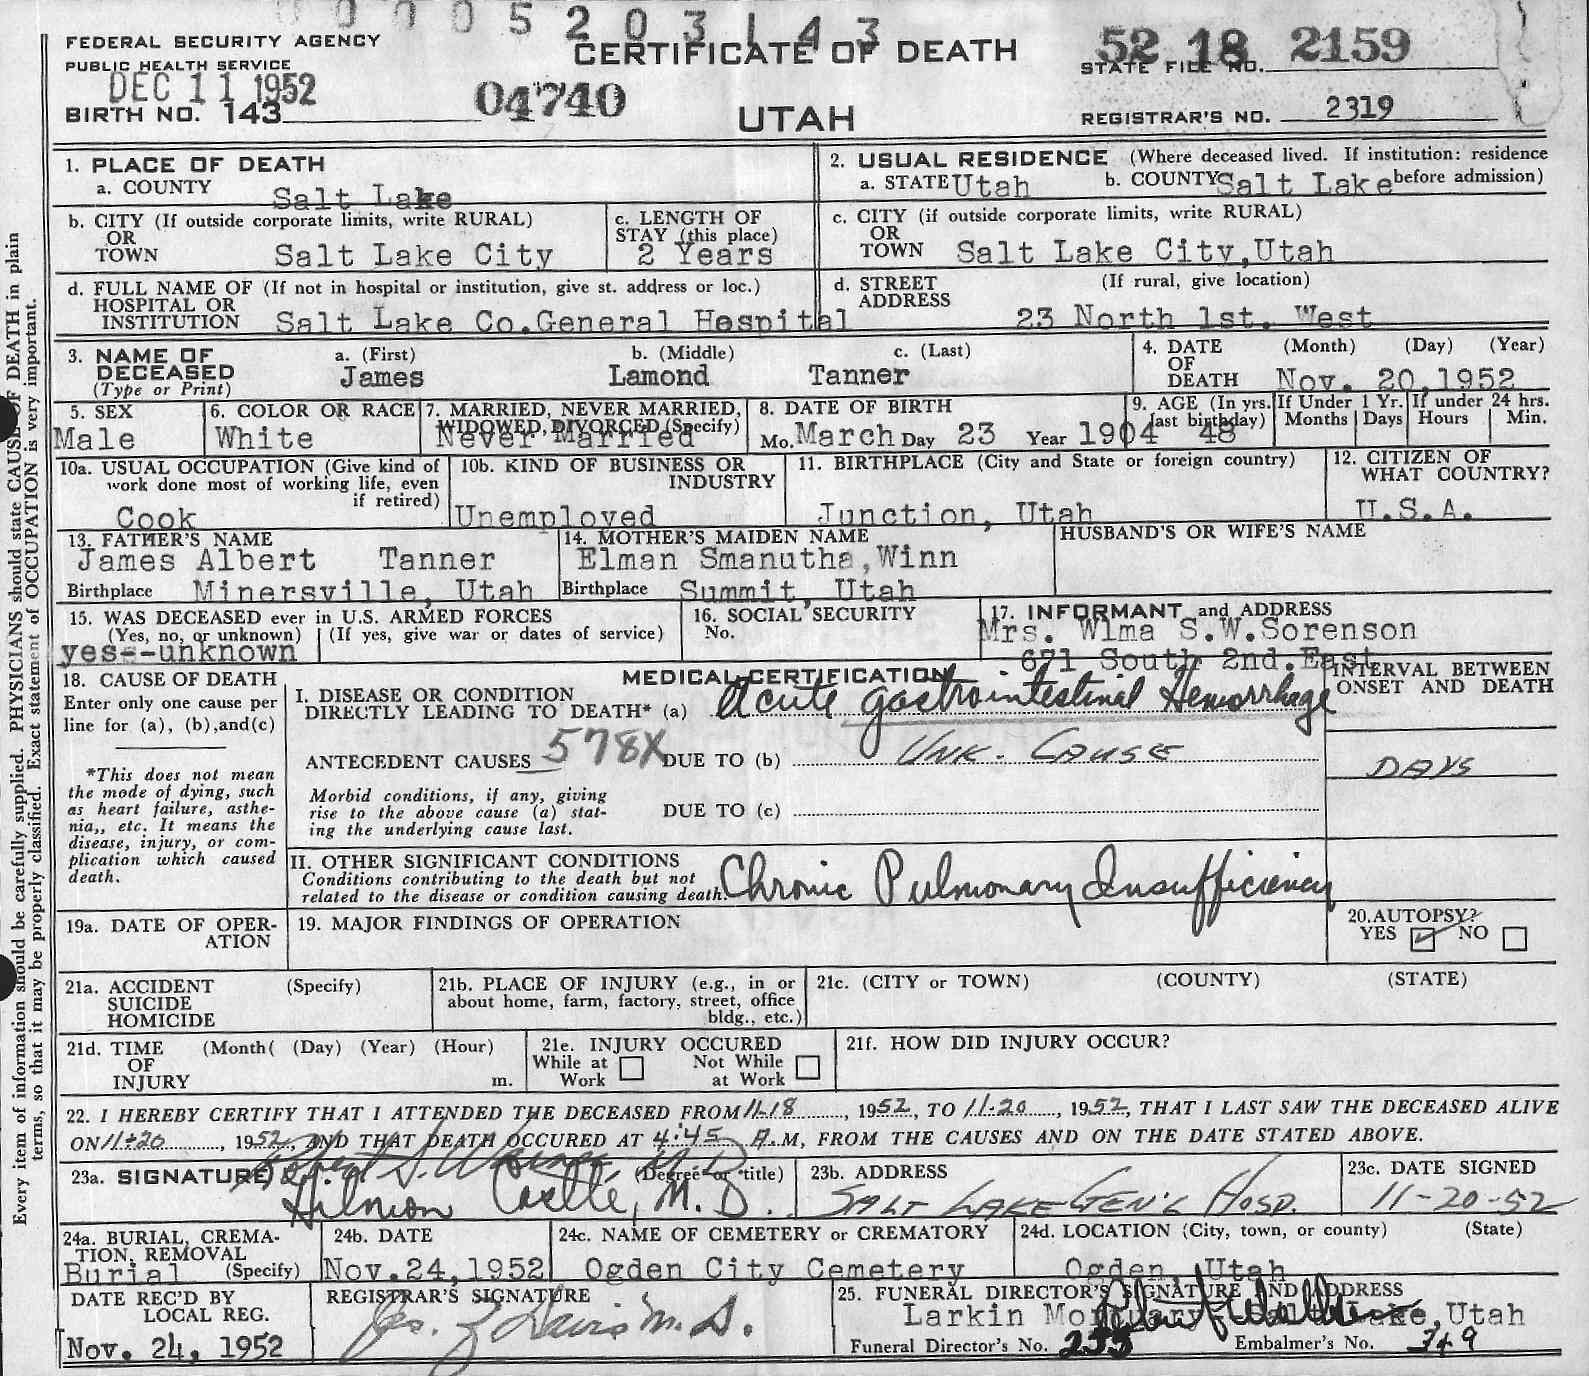 0005203143
FEDERAL SECURITY AGENCY
PUBLIC HEALTH SERVICE
DEC 11 1952
BIRTH NO. 143
04740
CERTIFICATE OF DEATH
UTAH
52 18 2159
STATE FILE NO.
REGISTRAR'S NO. 2319
1. PLACE OF DEATH
a. COUNTY Salt Lake
2. USUAL RESIDENCE (Where deceased lived. If institution: residence before admission)
a. STATE Utah b. COUNTY Salt Lake
b. CITY (If outside corporate limits, write RURAL)
OR
TOWN Salt Lake City
c. LENGTH OF
STAY (this place)
2 Years
c. CITY (if outside corporate limits, write RURAL)
OR
TOWN Salt Lake City,Utah
d. FULL NAME OF (If not in hospital or institution, give st. address or loc.)
HOSPITAL OR
INSTITUTION Salt Lake Co.General Hospital
d. STREET (If rural, give location)
ADDRESS
23 North 1st. West
3. NAME OF
DECEASED
(Type or Print)
a. (First) b. (Middle) c. (Last)
James Lamond Tanner
4. DATE (Month) (Day) (Year)
OF
DEATH Nov. 20,1952
5. SEX
Male
6. COLOR OR RACE
White
7. MARRIED, NEVER MARRIED,
WIDOWED, DIVORCED (Specify)
Never Married
8. DATE OF BIRTH
Mo. March Day 23 Year 1904
9. AGE (In yrs.
last birthday)
48
If Under 1 Yr.
Months Days
If under 24 hrs.
Hours Min.
10a. USUAL OCCUPATION (Give kind of
work done most of working life, even
if retired)
Cook
10b. KIND OF BUSINESS OR
INDUSTRY
Unemployed
11. BIRTHPLACE (City and State or foreign country)
Junction, Utah
12. CITIZEN OF
WHAT COUNTRY?
U.S.A.
13. FATHER'S NAME
James Albert Tanner
Birthplace Minersville, Utah
14. MOTHER'S MAIDEN NAME
Elman Smanutha,Winn
Birthplace Summit, Utah
HUSBAND'S OR WIFE'S NAME
15. WAS DECEASED ever in U.S. ARMED FORCES
(Yes, no, or unknown) (If yes, give war or dates of service)
yes--unknown
16. SOCIAL SECURITY
No.
17. INFORMANT and ADDRESS
Mrs. Wlma S.W.Sorenson
671 South 2nd.East
MEDICAL CERTIFICATION
18. CAUSE OF DEATH
Enter only one cause per
line for (a), (b),and(c)
*This does not mean
the mode of dying, such
as heart failure, asthe-
nia,, etc. It means the
disease, injury, or com-
plication which caused
death.
I. DISEASE OR CONDITION
DIRECTLY LEADING TO DEATH* (a) Acute gastrointestinal Hemorrhage
INTERVAL BETWEEN
ONSET AND DEATH
ANTECEDENT CAUSES 578X DUE TO (b) UNK. CAUSE
DAYS
Morbid conditions, if any, giving
rise to the above cause (a) stat-
ing the underlying cause last.
DUE TO (c)
II. OTHER SIGNIFICANT CONDITIONS
Conditions contributing to the death but not
related to the disease or condition causing death.
Chronic Pulmonary Insufficiency
19a. DATE OF OPER-
ATION
19. MAJOR FINDINGS OF OPERATION
20.AUTOPSY?
YES NO
21a. ACCIDENT (Specify)
SUICIDE
HOMICIDE
21b. PLACE OF INJURY (e.g., in or
about home, farm, factory, street, office
bldg., etc.)
21c. (CITY or TOWN) (COUNTY) (STATE)
21d. TIME (Month( (Day) (Year) (Hour)
OF
INJURY m.
21e. INJURY OCCURED
While at Work Not While at Work
21f. HOW DID INJURY OCCUR?
22. I HEREBY CERTIFY THAT I ATTENDED THE DECEASED FROM 11-18, 1952, TO 11-20, 1952, THAT I LAST SAW THE DECEASED ALIVE
ON 11-20, 1952, AND THAT DEATH OCCURED AT 4:45 A.M, FROM THE CAUSES AND ON THE DATE STATED ABOVE.
23a. SIGNATURE (Degree or title)
Robert S. M D
Hilmon Castle, M.D.
23b. ADDRESS
SALT LAKE GEN'L HOSP.
23c. DATE SIGNED
11-20-52
24a. BURIAL, CREMA-
TION, REMOVAL
Burial (Specify)
24b. DATE
Nov.24,1952
24c. NAME OF CEMETERY or CREMATORY
Ogden City Cemetery
24d. LOCATION (City, town, or county) (State)
Ogden, Utah
DATE REC'D BY
LOCAL REG.
Nov. 24, 1952
REGISTRAR'S SIGNATURE
Davis M.D.
25. FUNERAL DIRECTOR'S SIGNATURE AND ADDRESS
Larkin Mortuary Salt Lake,Utah
Funeral Director's No. 255 Embalmer's No. 349
Every item of information should be carefully supplied. PHYSICIANS should state CAUSE OF DEATH in plain
terms, so that it may be properly classified. Exact statement of OCCUPATION is very important.